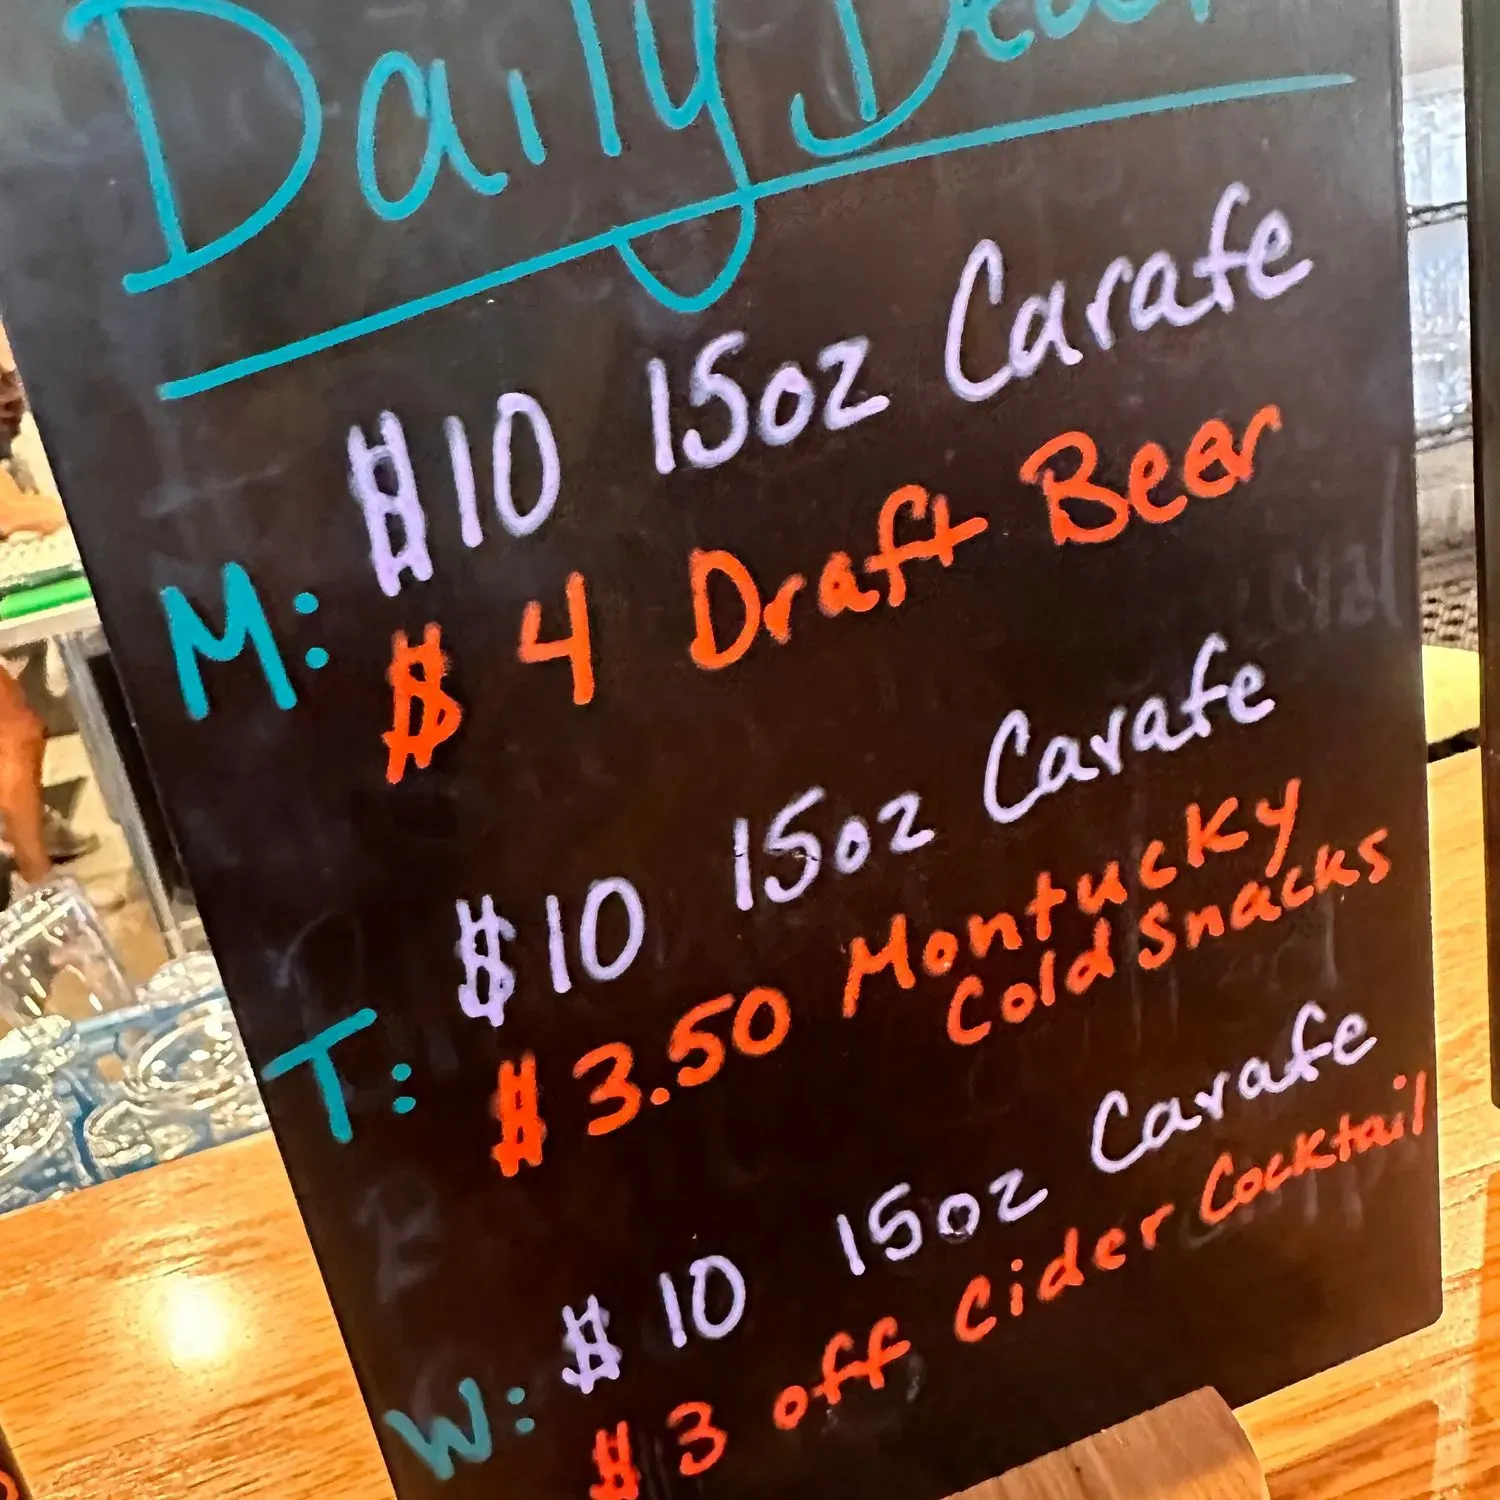 Daily
$10 15oz Carafe
M: $4 Draft Beer
$10 15oz Carafe
T: $3.50 Montucky
Cold Snacks
$10 15oz Carafe
W: $3 off Cider Cocktail